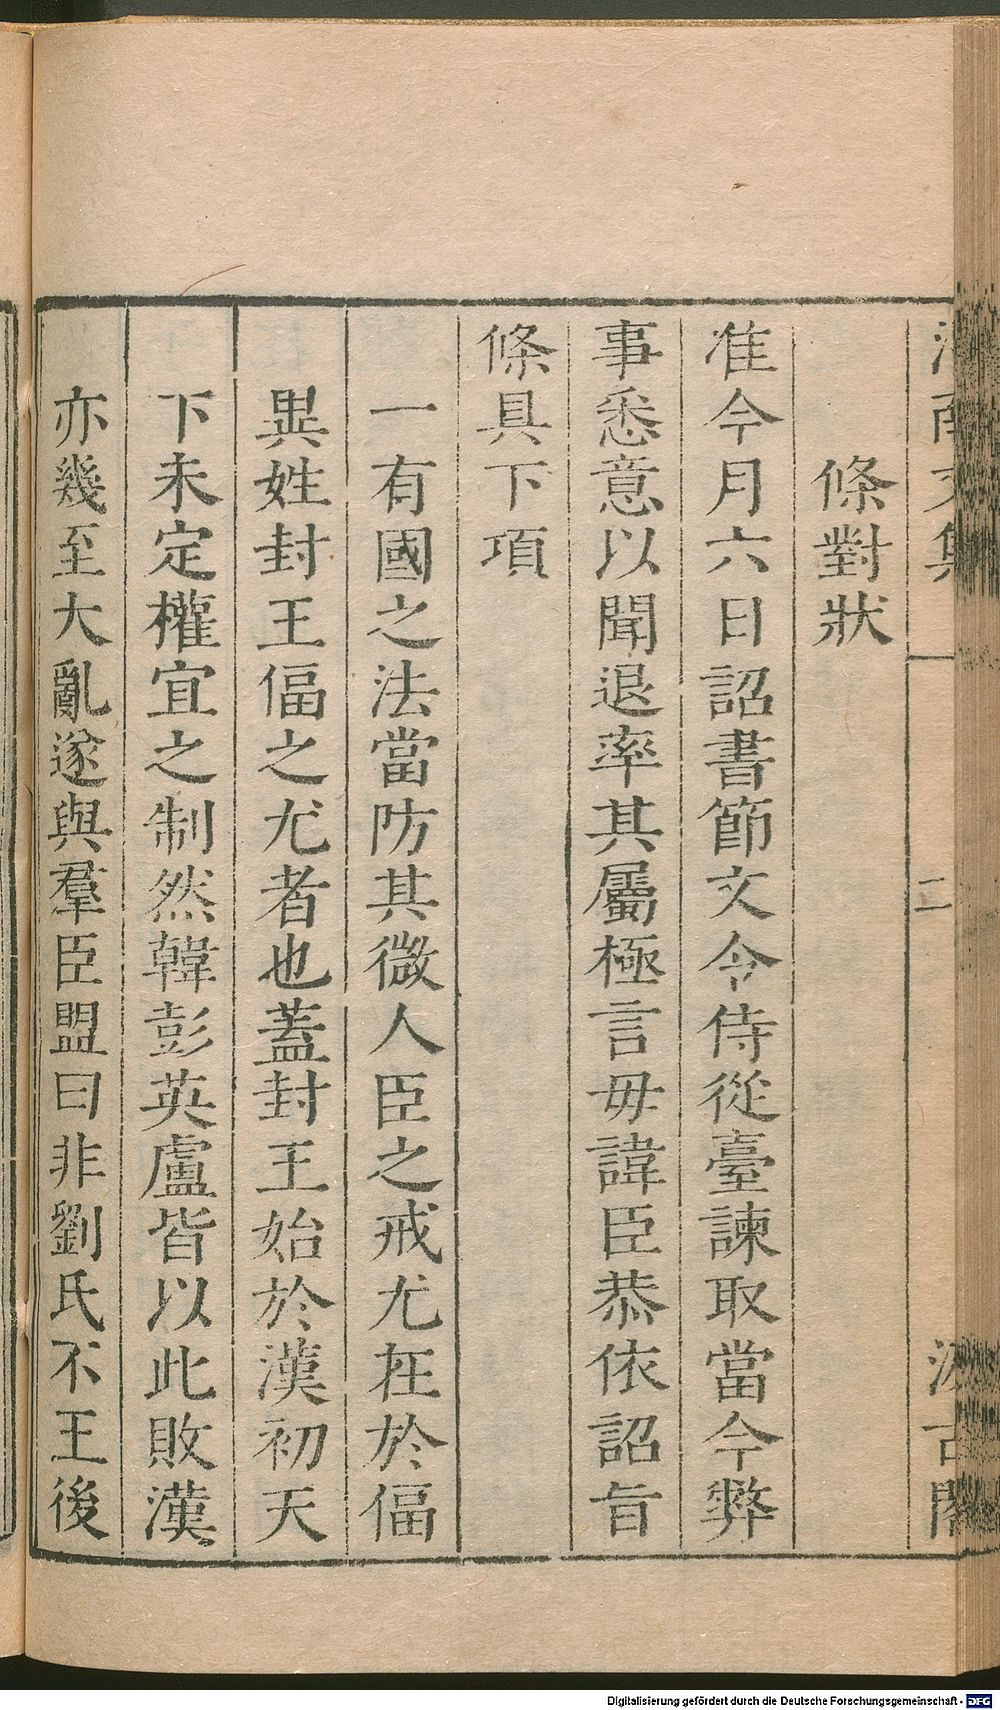 渭南文集
二
汲古閣
條對狀
准今月六日詔書節文令侍從臺諫取當今弊
事悉意以聞退率其屬極言毋諱臣恭依詔旨
條具下項
一有國之法當防其微人臣之戒尤在於偪
異姓封王偪之尤者也蓋封王始於漢初天
下未定權宜之制然韓彭英盧皆以此敗漢
亦幾至大亂遂與羣臣盟曰非劉氏不王後
Digitalisierung gefördert durch die Deutsche Forschungsgemeinschaft - DFG